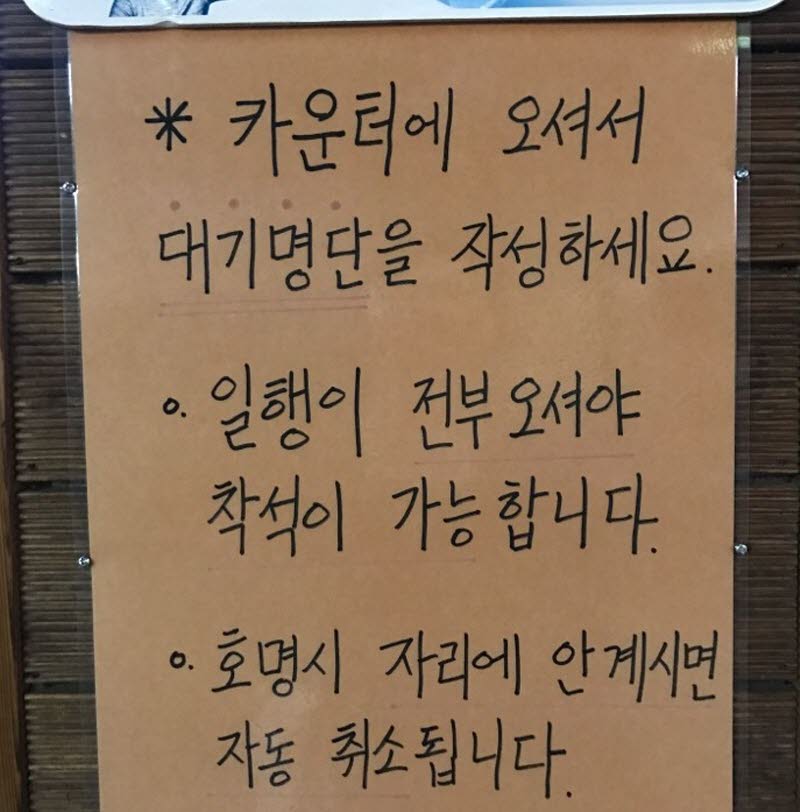 * 카운터에 오셔서
대기명단을 작성하세요.
o. 일행이 전부 오셔야
착석이 가능합니다.
o. 호명시 자리에 안계시면
자동 취소됩니다.